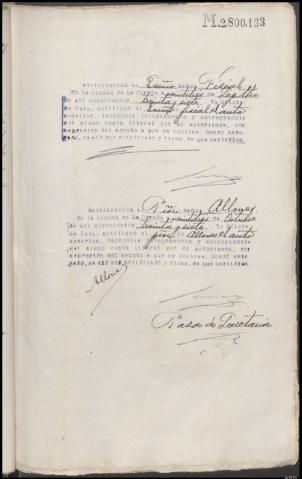 M.2800.133
Notificación al Excmo Señor Fiscal
En la ciudad de La Coruña a veintitres de
de mil novecientos treinta y siete. Yo
de Sala, notifiqué al Excmo fiscal el auto
anterior, leyéndole íntegramente y entregándole
del mismo copia literal por mi autorizada, con
expresión del asunto a que se contrae. Quedó ente-
rado, se dió por notificado y firma, de que certifico.
Notificación al Señor Allones
En la ciudad de La Coruña a veintitres de Octubre
de mil novecientos treinta y siete. Yo
de Sala, notifiqué al Allones el auto
anterior, leyéndole íntegramente y entregándole
del mismo copia literal por mi autorizada, con
expresión del asunto a que se contrae. Quedó ente-
rado, se dió por notificado y firma, de que certifico.
Allones
Pasa de Secretaría